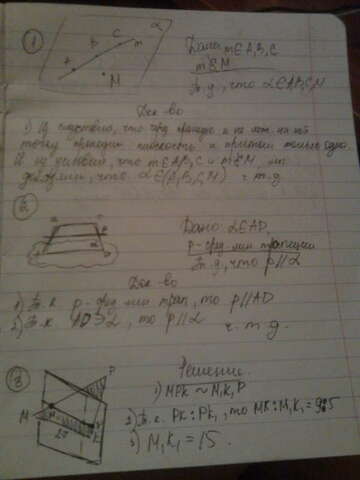 1
α
A
B
C
m
M
Дано: m∈A,B,C
m∉M
Т.д., что α∈A,B,C,M
Док-во
1) Из следствия, что через прямую и не леж. на ней
точку проходит плоскость и притом только одна
И из условия, что m∈A,B,C и m∉M, мы
что α∈(A,B,C,M) ч.т.д.
2
Дано: α∈AD,
p-сред. лин. трапеции
Т.д., что p//α
Док-во
1) Т.к. p-сред. лин. трап., то p//AD
2) Т.к. AD∋α, то p//α
ч.т.д.
3
P
M
27
Решение.
1) MPK ~ M₁K₁P
2) Т.к. PK:PK₁, то MK:M₁K₁=9:5
3) M₁K₁=15.